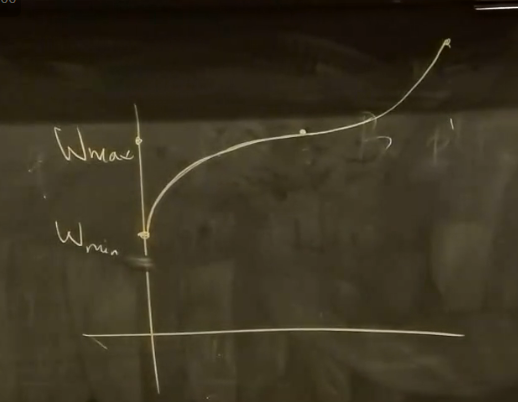 Wmax
Wmin